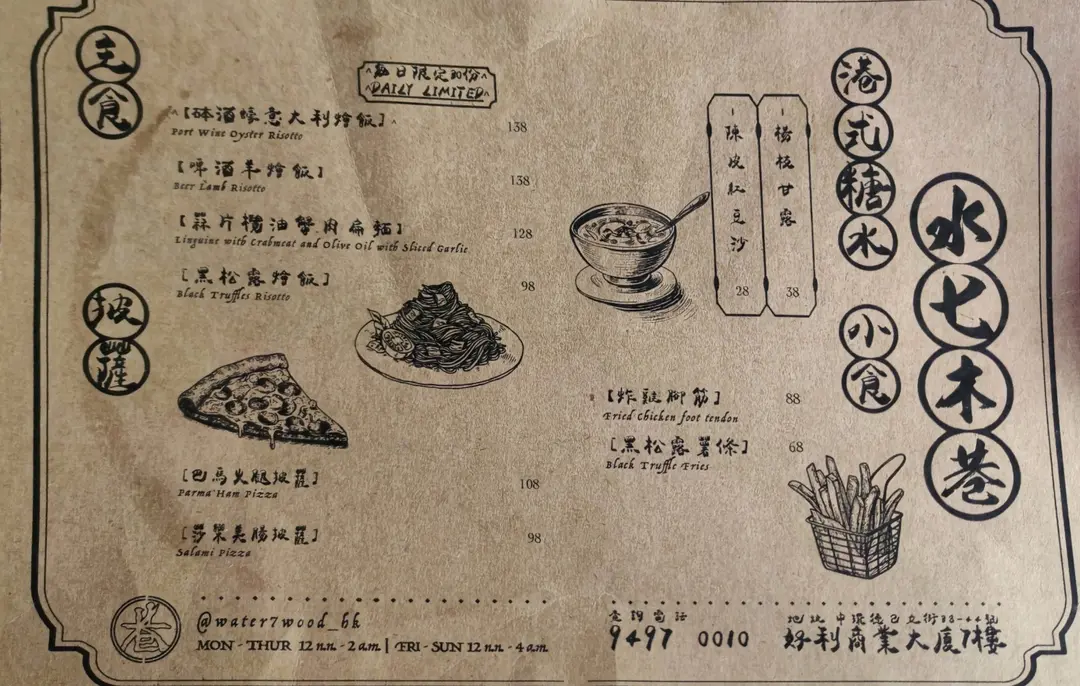 主食
每日限定10份
DAILY LIMITED
【砵酒蠔意大利燴飯】
Port Wine Oyster Risotto
138
【啤酒羊燴飯】
Beer Lamb Risotto
138
【蒜片欖油蟹肉扁麵】
Linguine with Crabmeat and Olive Oil with Sliced Garlic
128
【黑松露燴飯】
Black Truffles Risotto
98
披薩
【巴馬火腿披薩】
Parma Ham Pizza
108
【莎樂美腸披薩】
Salami Pizza
98
港式糖水
楊枝甘露
38
陳皮紅豆沙
28
小食
【炸雞腳筋】
Fried Chicken foot tendon
88
【黑松露薯條】
Black Truffle Fries
68
水七木巷
巷
@water7wood_hk
MON - THUR 12n.n. - 2a.m. | FRI - SUN 12n.n. - 4a.m.
查詢電話
9497 0010
地址 中環德己立街38-44號
好利商業大廈7樓